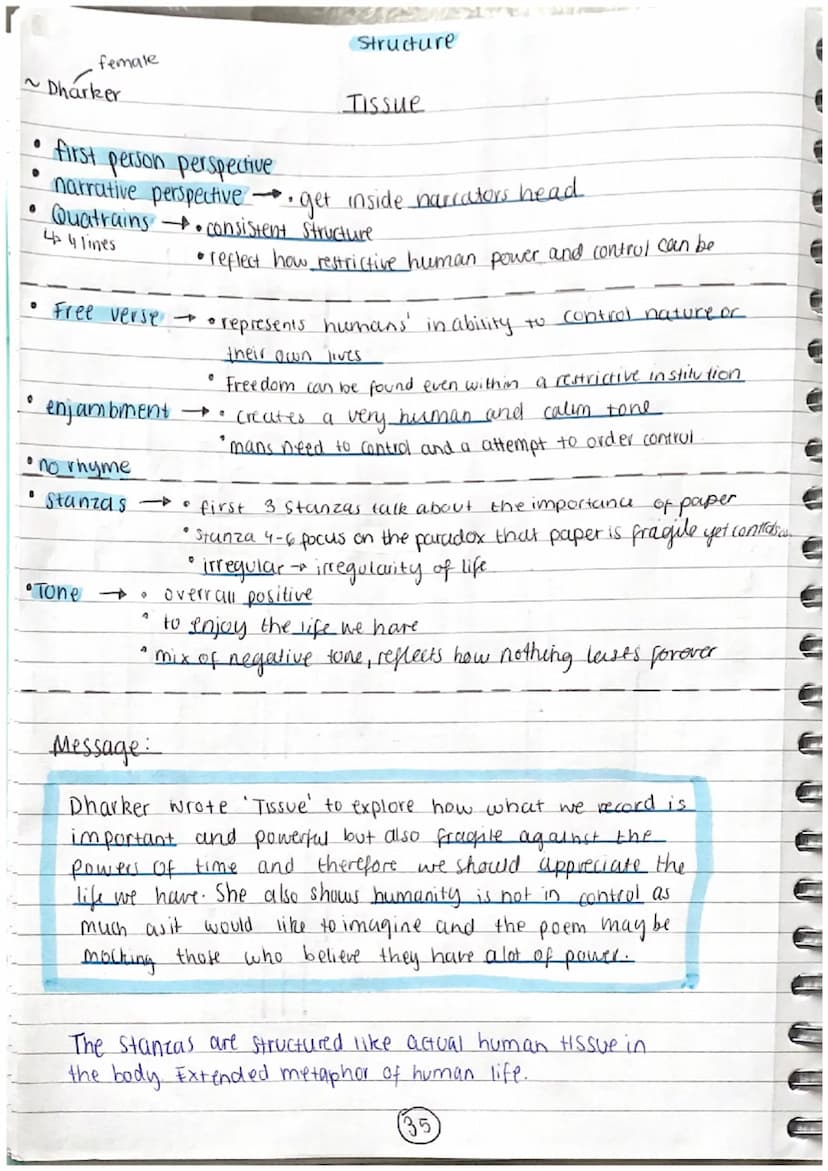 Structure
female
~ Dharker
Tissue
• first person perspective
• narrative perspective → • get inside narrators head
• Quatrains → • consistent structure
↳ 4 lines
• reflect how restrictive human power and control can be
• Free verse → • represents humans' inability to control nature or
their own lives
• Freedom can be found even within a restrictive institution
• enjambment → • creates a very human and calm tone
• mans need to control and a attempt to order control
• no rhyme
• Stanzas → • first 3 stanzas talk about the importance of paper
• Stanza 4-6 focus on the paradox that paper is fragile yet
• irregular → irregularity of life
• Tone → • overrall positive
• to enjoy the life we have
• mix of negative tone, reflects how nothing lasts forever
Message:
Dharker wrote 'Tissue' to explore how what we record is
important and powerful but also fragile against the
powers of time and therefore we should appreciate the
life we have. She also shows humanity is not in control as
much as it would like to imagine and the poem may be
mocking those who believe they have alot of power.
The stanzas are structured like actual human tissue in
the body. Extended metaphor of human life.
35